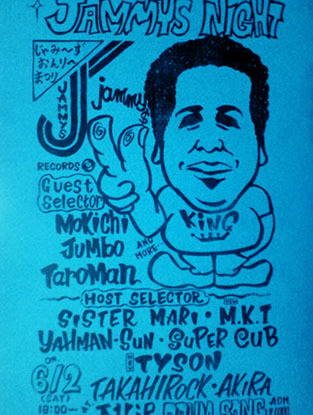 JAMMYS NIGHT
じゃみ〜ず
おんりー
まつり
JAMMYS
jammys
RECORDS
Guest
Selector
MOKICHI
JUMBO
TaroMan
AND MORE
KING
HOST SELECTOR
SISTER MARI・M.K.T
YAHMAN-SUN・SUPER CUB
TYSON
ON.
6/2
(SAT)
TAKAHIROCK・AKIRA
18:00〜
ADM